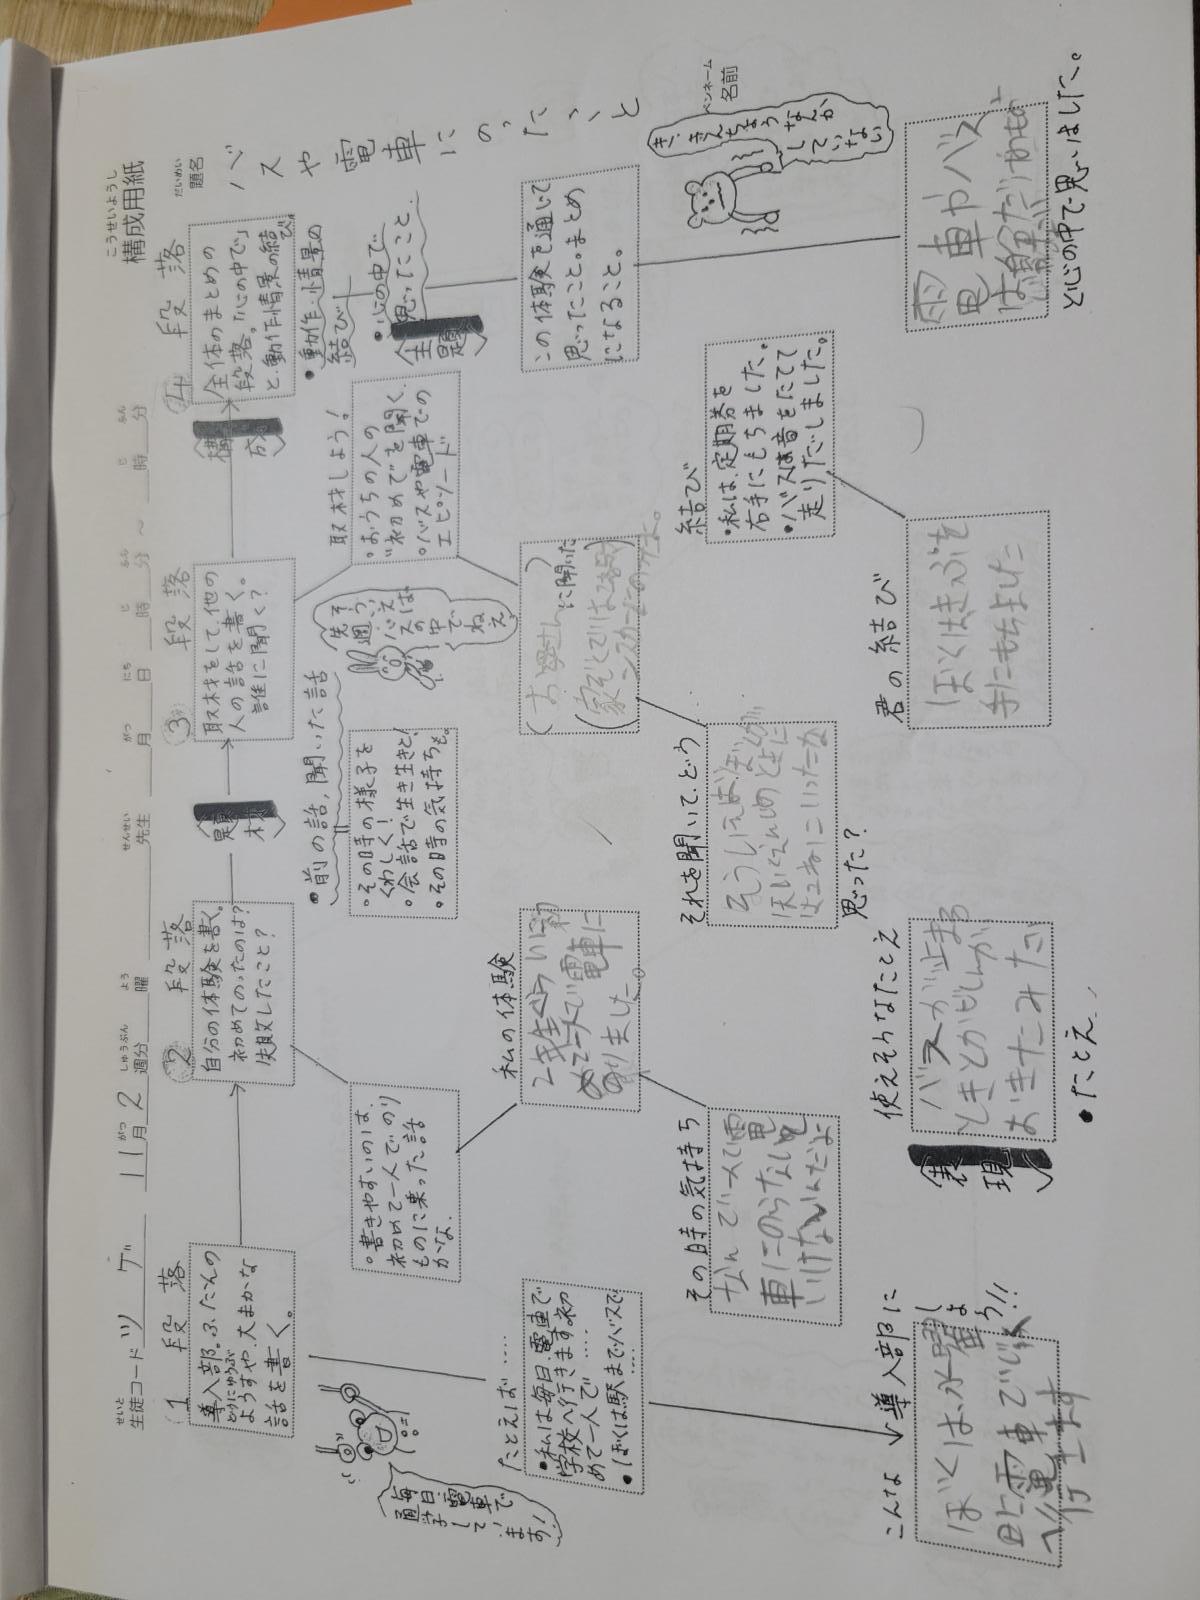 こうせいようし
構成用紙
せいと
生徒コード ツ ゲ
11月 2 週分 曜 先生 月 日 時 分 ～ 時 分
がつ しゅうぶん よう せんせい がつ にち じ ふん じ ふん
だいめい
題名
バスや電車にのったこと
ペンネーム
名前
1 段落
導入部。ふだんの
どうにゅうぶ
ようすや、大まかな
話を書く。
毎日、電車で
通学して
います!
たとえば……
・私は毎日、電車で
学校へ行きます。初
めて一人で……
・ぼくは駅までバスで
……
こんな導入部にしよう!!
ぼくは、水曜
日に電車で
へ行きます
2 段落
自分の体験を書く。
初めてのったのは?
失敗したこと?
・書きやすいのは、
初めて一人でのり
ものに乗った話
かな。
私の体験
2年生くらいに初
めて一人で電車に
のりました。
その時の気持ち
なんで一人で電
車にのらないと
いけないんだよ
題材
・前の話、聞いた話
・その時の様子を
くわしく!
・会話で生き生きと!
・その時の気持ちも。
3 段落
取材をして、他の
人の話を書く。
誰に聞く?
取材しよう!
・おうちの人の
“初めて”を聞く。
・バスや電車での
エピソード
そう、
先週、
バス
の中
でねえ
(お母さん)に聞いた
それを聞いて、どう
思った?
そういえば、ぼくが
使えそうなたとえ
バスが止まる
ときとかじしんが
おきたみたい
・たとえ
表現
構成
4 段落
全体のまとめの
段落。「心の中で」
と、動作情景の結び
・動作・情景の
結び
・心の中で
思ったこと
主題
この体験を通じて
思ったこと。まとめ
になること。
き、きんちょうなんか
していない
電車やバス
は
と心の中で思いました。
結び
・私は、定期券を
右手にもちました。
・バスは音をたてて
走りだしました。
君の結び
ぼくはきっぷを
手にもちました